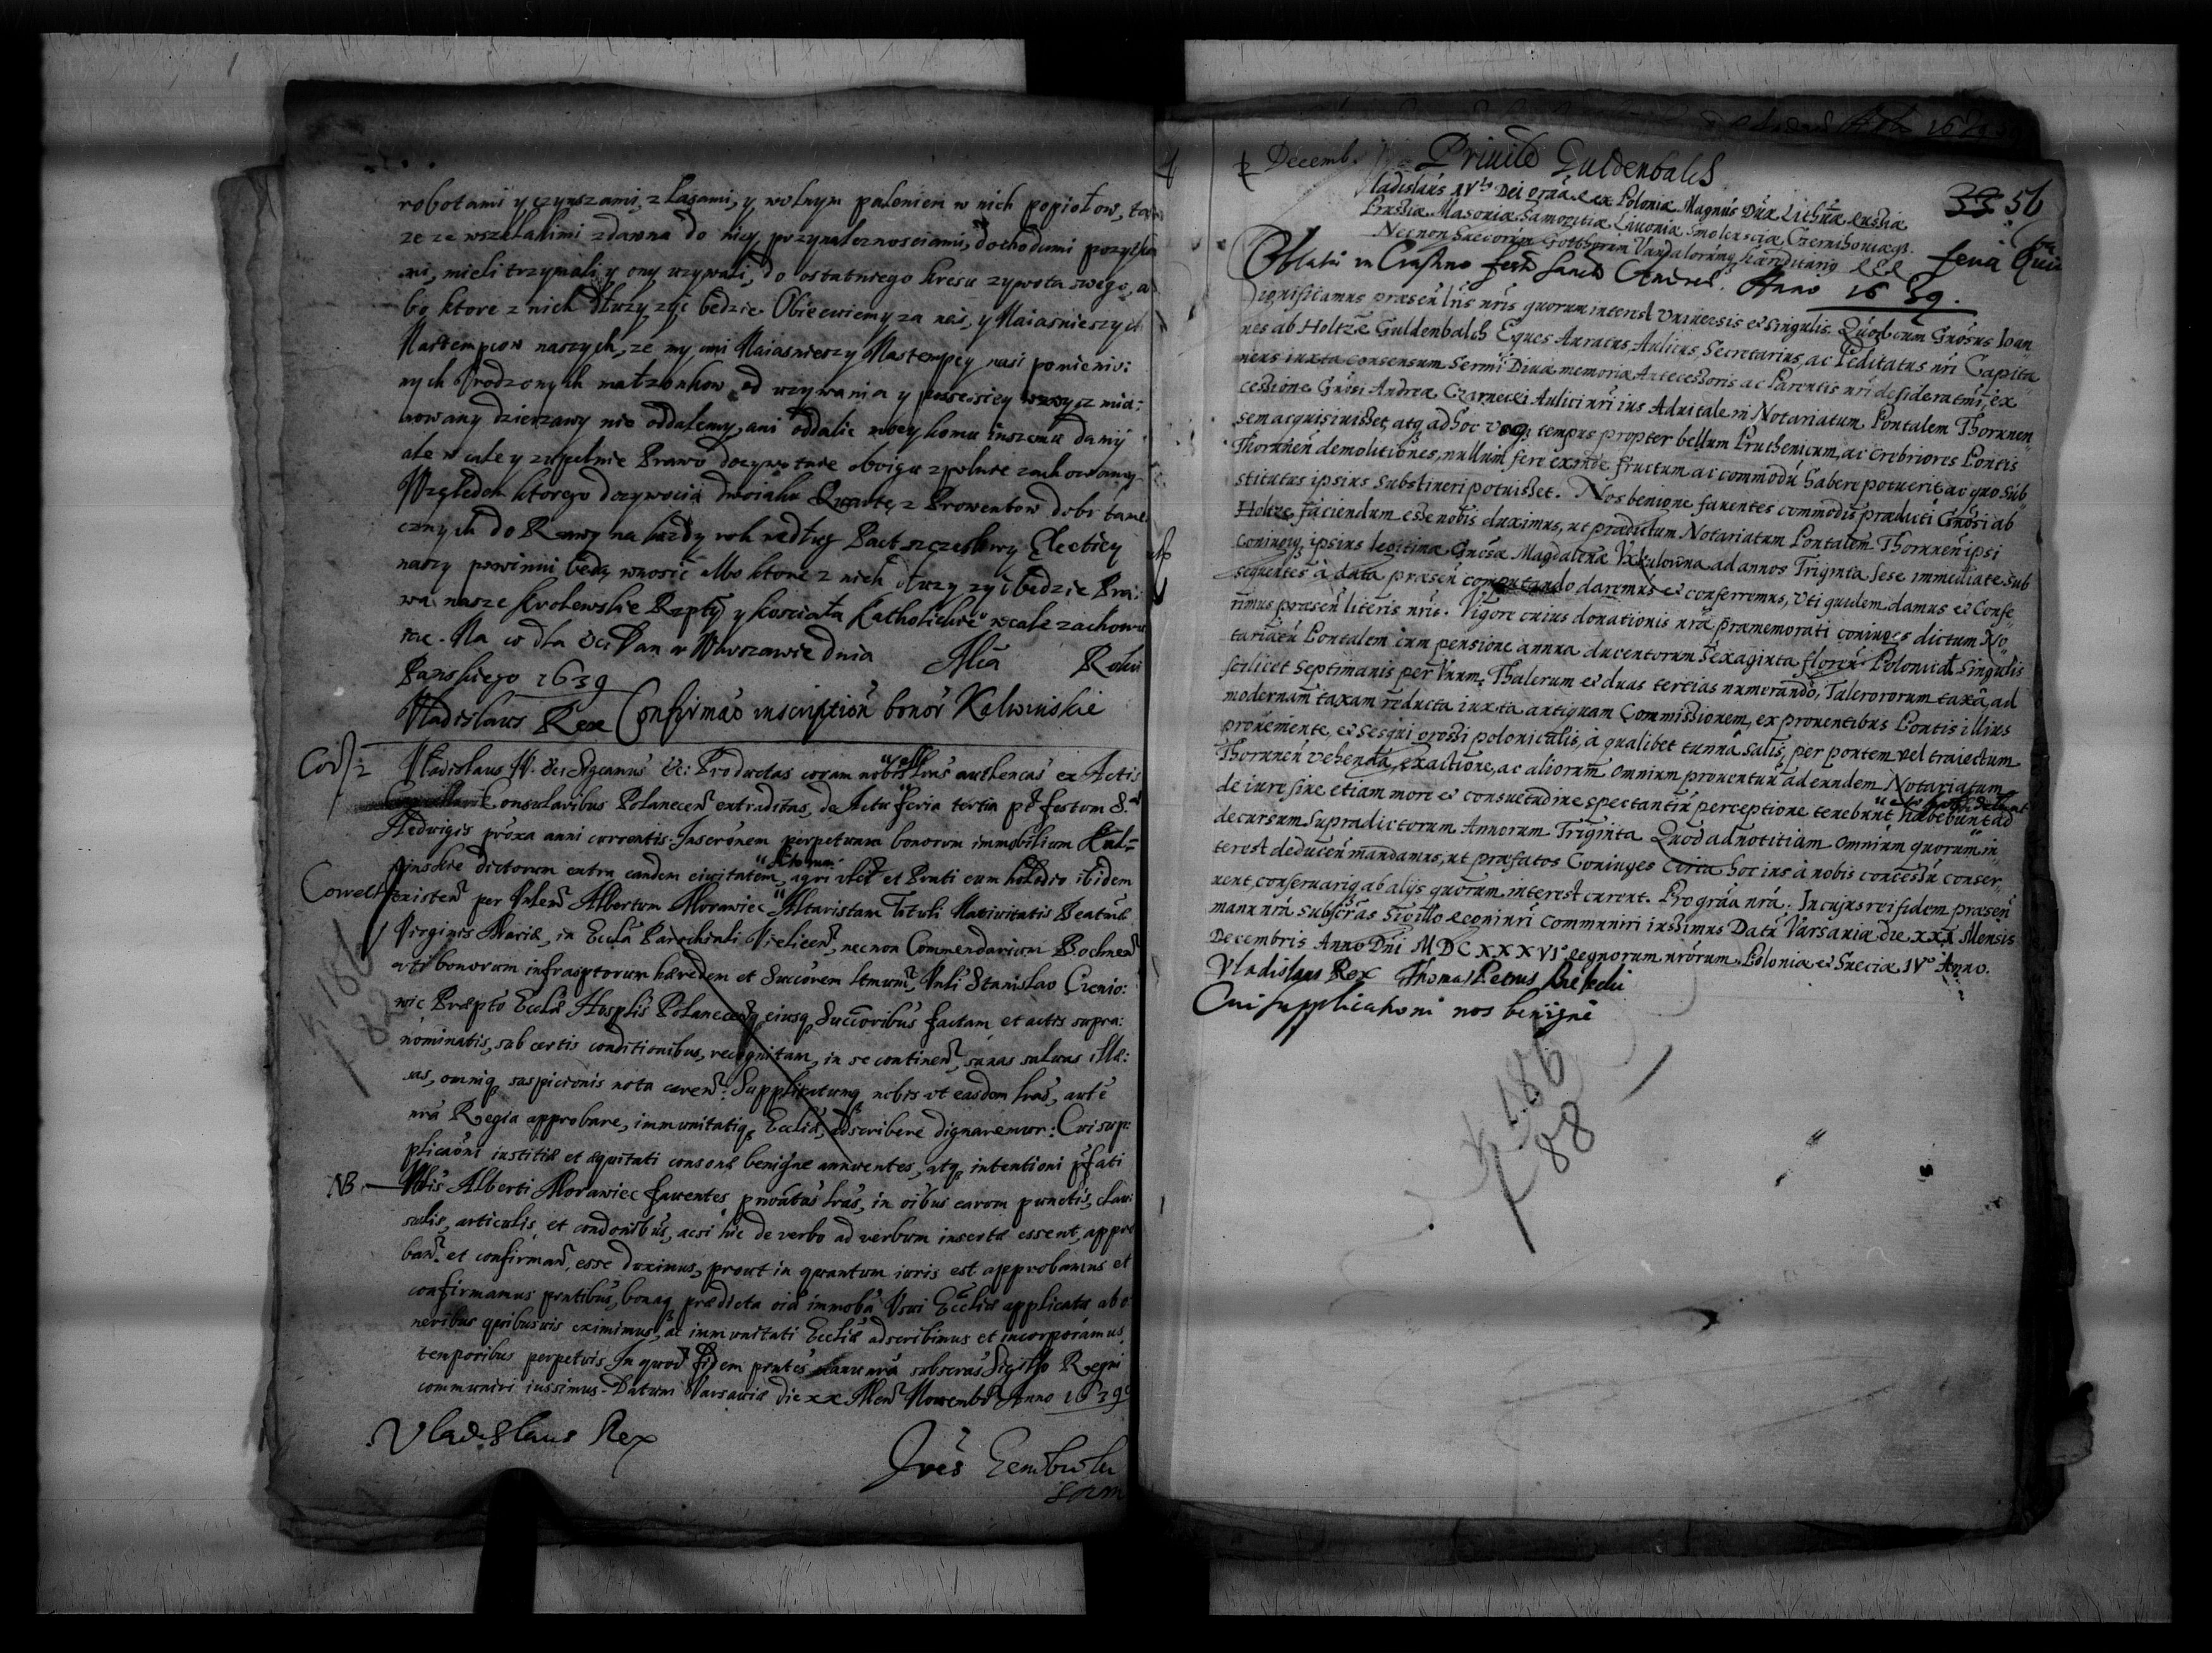 robotami y czynszami, z Łasami, y wolnym paleniem w nich popiołow,
ze ze wszelakimi zdawna do niey przynaleznosciami, dochodami pozytka
mi, mieli trzymali y ony uzywali, do ostatniego kresu zywota swego, a
bo ktore z nich dłuzy zyc będzie Obiecuiemy za nas, y Naiasnieszych
Nastempcow naszych, ze my, ani Naiasnieszy Nastempcy nasi pomienio:
nych Urodzonych małzonkow od uzywania y possessiey wysz mia:
nowany dzierzawy nie oddalemy, ani oddalic nikomu inszemu damy
ale w cale y zupełnie Prawo dozywotnie oboigu zpolnie zachowamy
Względem ktorego dozywocia dwoiaką Quartę z Prowentow dobr tame
cznych do Rawy na każdy rok według Pact szczęsliwy Electiey
naszy powinni będą wnosić albo ktore z nich dłuzy zyć będzie Pra:
wa nasze Krolewskie Rzptey y kościoła Katholickie wcale zachowu
iąc. Na co dla &c. Dan w Warszawie dnia Mca Roku
Pańskiego 1639
Vladislaus Rex Confirmao inscription bonor Kalwinskie
Vladislaus IV. &c. Significamus &c: Productas coram nobis esse lras authencas ex Actis
Consularibus Polanecen extraditas, de Actu Feria tertia pt festum S.
Hedwigis proxa anni currentis Inscronem perpetuam bonorum immobilium Kal=
winskie dictorum extra eandem civitatem, agri ulti et Prati cum horto ibidem
Correct existen per Vnlem Albertum Morawiec Altaristam Tituli Nativitatis Beatme
Virginis Mariæ, in Eccla Parochiali Vielicen, necnon Commendarium Bochnen
uti bonorum infrascptorum hæredem et Succrem ltmum, Vnli Stanislao
wic Præpto Ecclæ Hosplis Polanecen eiusq Succoribus factam et actis supra:
nominatis, sub certis conditionibus, recognitam, in se continen, sanas salvas illæ:
sas, omniq suspicionis nota caren: Supplicatumq nobis ut easdem lras, aute
nra Regia approbare, immunitatiq Ecclæ, adscribere dignaremur: Cui sup:
plicaoni iustitiæ et æquitati consonæ benigne annuentes, atq intentioni pfati
NB. Vnlis Alberti Morawiec faventes, lras, in oibus earum punctis, clau:
sulis, articulis, et condonibus, acsi hic de verbo ad verbum insertæ essent, appro
ban et confirman, esse duximus, prout in quantum iuris est approbamus et
confirmamus pntibus, bonaq prædicta oia immoba Usui Ecclæ applicata ab o
neribus quibusvis eximimus, ac immunitati Ecclæ adscribimus et incorporamus
temporibus perpetuis. In quorum fidem pntes manu nra subscras Sigillo Regni
communiri iussimus. Datum Varsaviæ die xx Men Novembr Anno 1639
Vladislaus Rex
186
88
Decemb. Privile Guldenbalch
33 56
Vladislaus IVto Dei gra Rex Poloniæ Magnus Dux Lithuæ Russiæ
Prussiæ Masoviæ Samogitiæ Livoniæ Smolensciæ Czernihoviæq
Necnon Suecorum Gotthorum Vandalorumq hæreditarius Rex
Oblata in Crastino festi Sancti Andreæ. Anno 1639. feria Quin
Significamus præsen lris nris quorum interest universis et singulis. Quod cum Gnosus Ioan
nes ab Holtze Guldenbalch Eques Auratus, Aulicus, Secretarius, ac Peditatus nri Capita
neus iuxta consensum Sermi Divæ memoriæ Antecessoris ac Parentis nri desideratmi, ex
cessione Gnosi Andreæ Czarnecki Aulici nri ius Advitale in Notariatum Pontalem Thorunen
sem acquisivisset, atq ad hoc usq tempus propter bellum Pruthenicum, ac crebriores Pontis
Thorunen demolitiones, nullum fere exinde fructum ac commodu habere potuerit, ac quo sub
stitutus ipsius substineri potuisset. Nos benigne faventes commodis prædicti Gnosi ab
Holtze faciendum esse nobis duximus, ut prædictum Notariatum Pontalem Thorunen ipsi
coniugiq ipsius legitimæ Gnosæ Magdalenæ Vxkulowna ad annos Triginta sese immediate sub
sequentes à data præsen computando daremus et conferremus, Uti quidem damus et Confe
rimus præsen literis nris. Vigore cuius donationis nræ præmemorati coniuges dictum No
tariatu Pontalem cum pensione annua ducentorum sexaginta floren Polonical Singulis
scilicet Septimanis per Unum Thalerum et duas tertias numerando, Talerororum taxa, ad
modernam taxam reducta iuxta antiquam Commissionem, ex proventibus Pontis illius
proveniente, et sesqui grossi polonicalis, à qualibet tunna salis, per pontem vel traiectum
Thorunen vehenda, exactione, ac aliorum omnium proventuu ad eundem Notariatum
de iure sive etiam more et consuetudine spectantiu perceptione tenebunt habebunt ad
decursum Supradictorum Annorum Triginta Quod ad notitiam omnium quorum in
terest deducen mandamus, ut præfatos Coniuges circa hoc ius à nobis concessu conser
vent, conservariq ab alijs quorum interest curent. Pro gra nra. In cujus rei fidem præsen
manu nra subscras Sigillo Regni nri communiri iussimus Datu Varsaviæ die XXX Mensis
Decembris Anno Dni MDCXXXVI° Regnorum nrorum Poloniæ et Sueciæ IV° Anno.
Vladislaus Rex Thomas Petrus
Cui supplicationi nos benigne
186
88